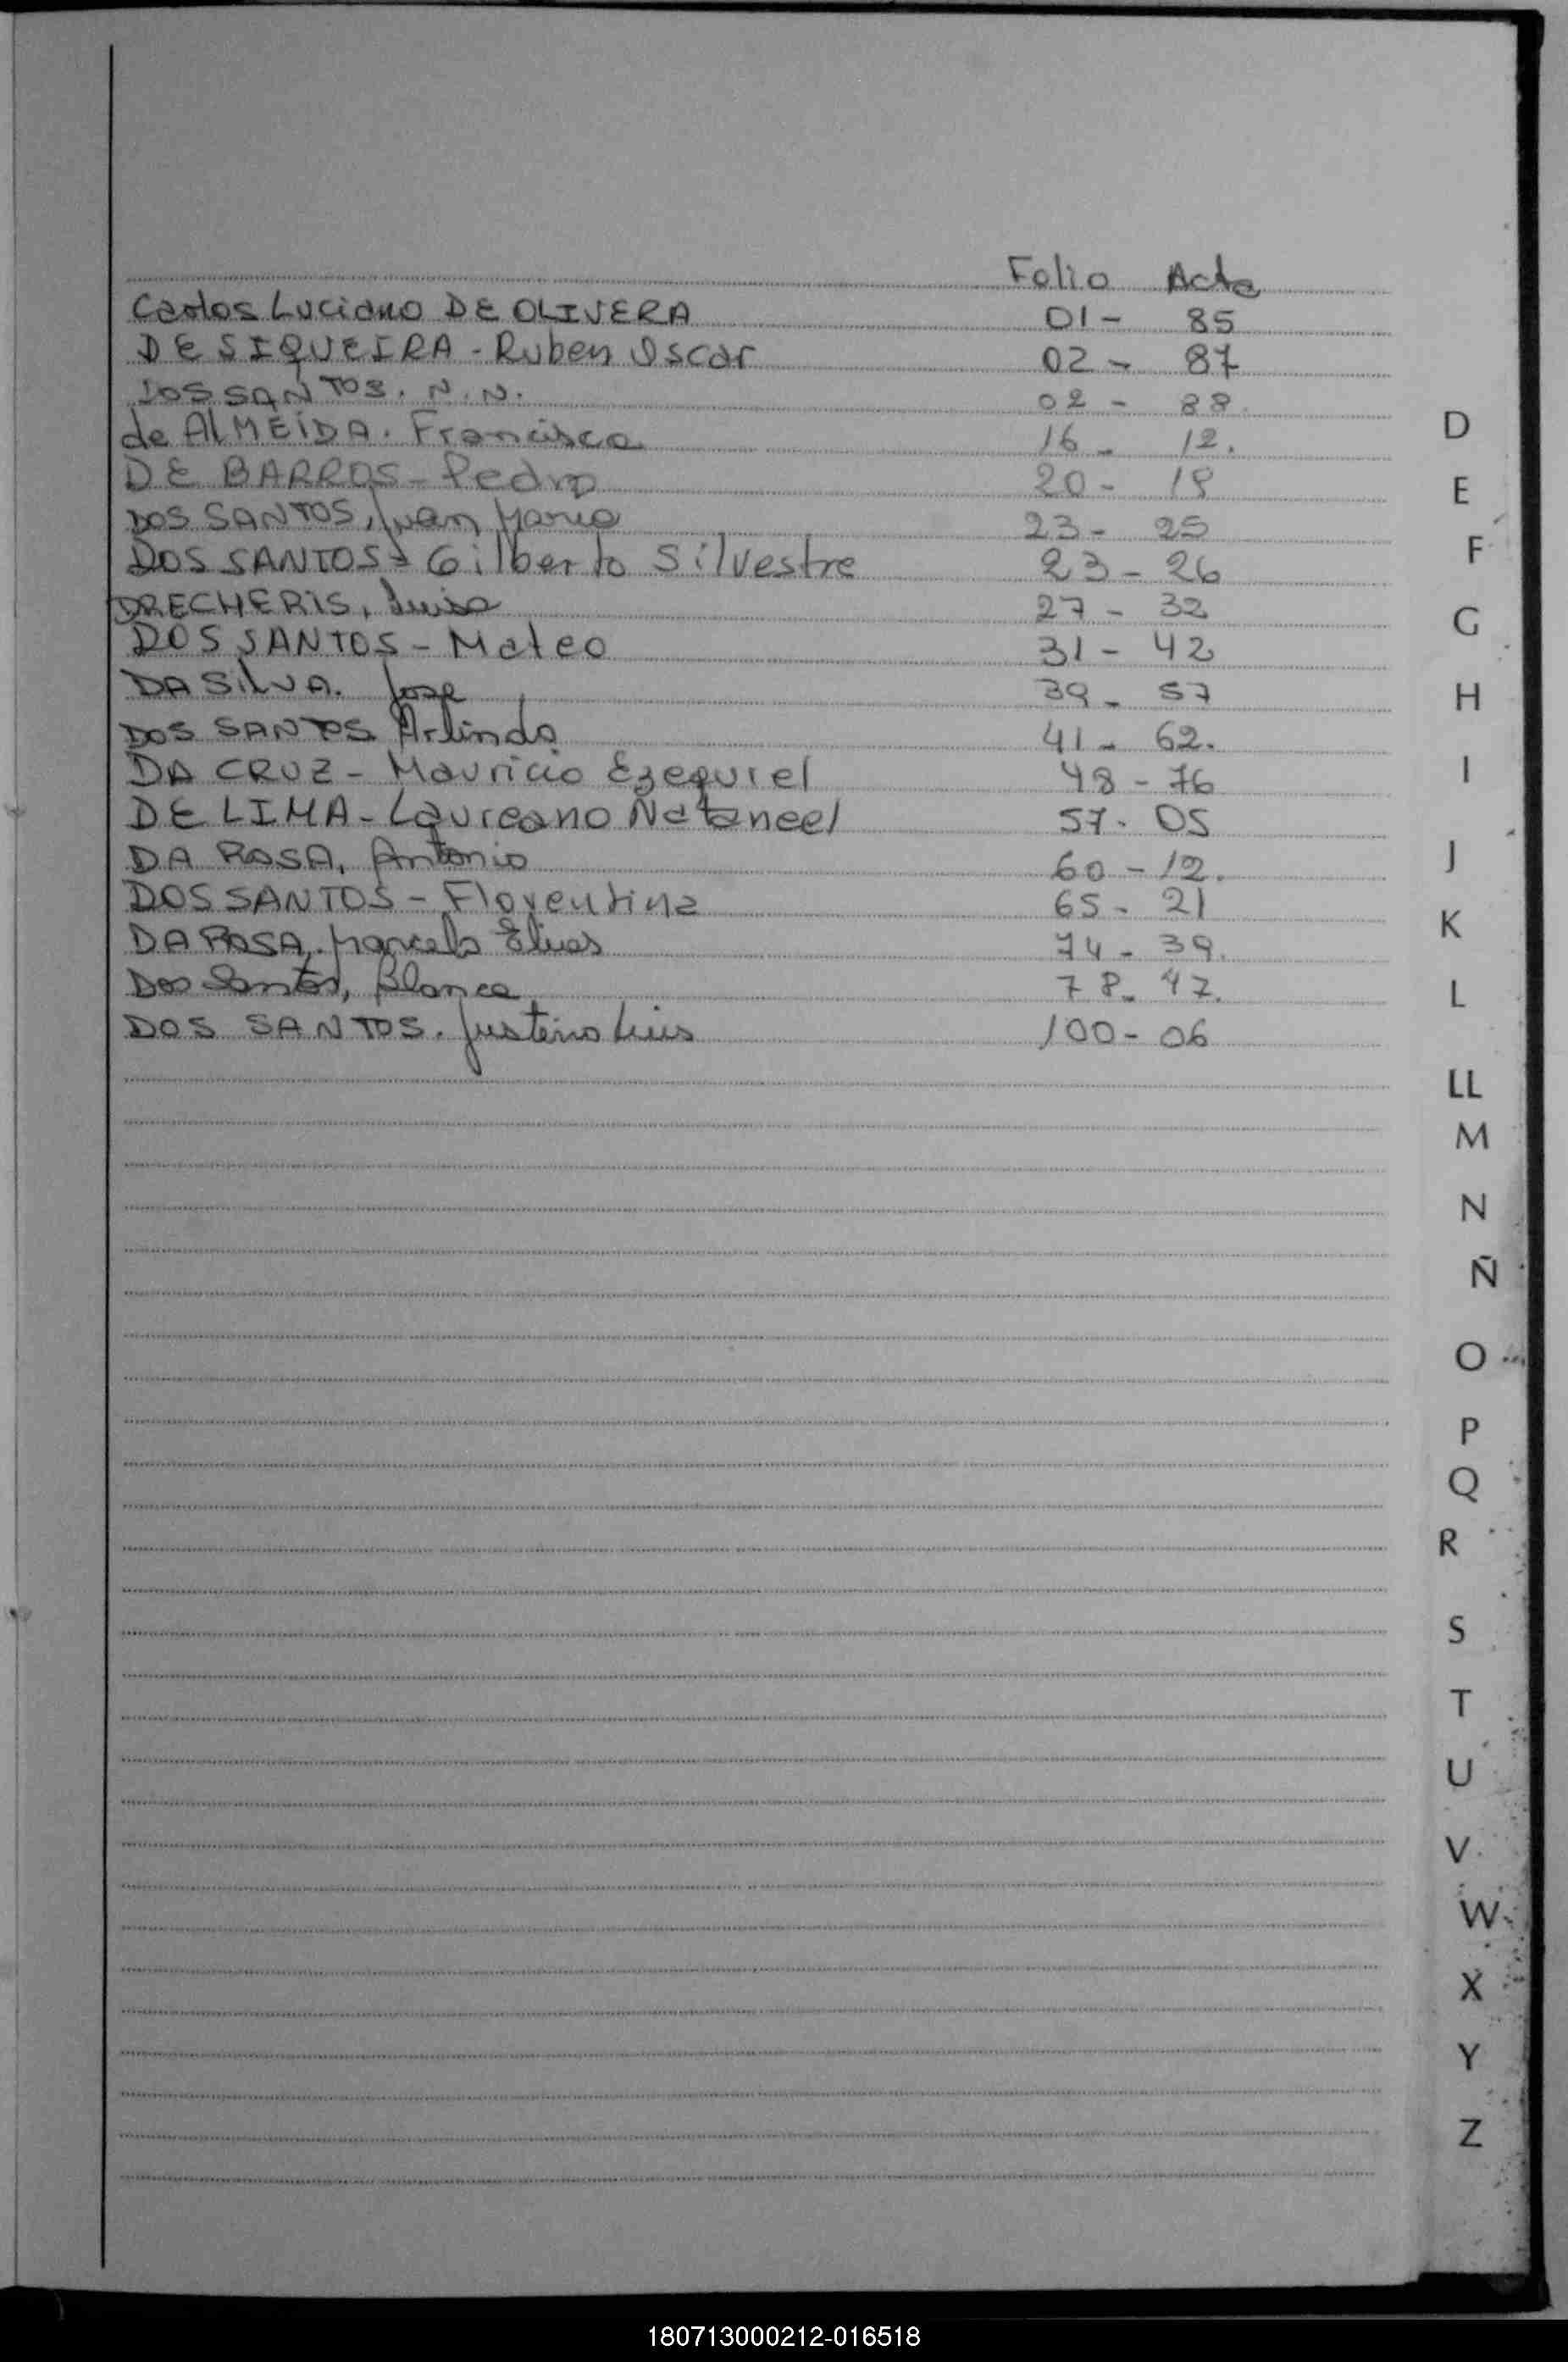 Folio Acta
Carlos Luciano DE OLIVERA 01 - 85
DE SIQUEIRA - Ruben Oscar 02 - 87
DOS SANTOS. N.N. 02 - 88.
de ALMEIDA. Francisca 16 - 12.
DE BARROS - Pedro 20 - 19
DOS SANTOS, Juan Mario 23 - 25
DOS SANTOS - Gilberto Silvestre 23 - 26
DRECHERIS, Luisa 27 - 32
DOS SANTOS - Mateo 31 - 42
DA SILVA. Jose 39 - 57
DOS SANTOS Arlindo 41 - 62.
DA CRUZ - Mauricio Ezequiel 48 - 76
DE LIMA - Laureano Nataneel 57 - 05
DA ROSA, Antonio 60 - 12.
DOS SANTOS - Florentina 65 - 21
DA ROSA, Marcelo Elias 74 - 39.
Dos Santos, Blanca 78 - 47.
DOS SANTOS. Justino Luis 100 - 06
D
E
F
G
H
I
J
K
L
LL
M
N
Ñ
O
P
Q
R
S
T
U
V
W
X
Y
Z
180713000212-016518